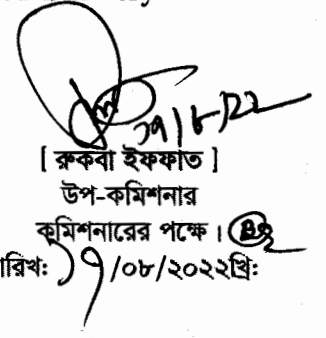 ১৭/৮/২২
[ রুকবা ইফফাত ]
উপ-কমিশনার
কমিশনারের পক্ষে।
ারিখ: ১৭/০৮/২০২২খ্রি: